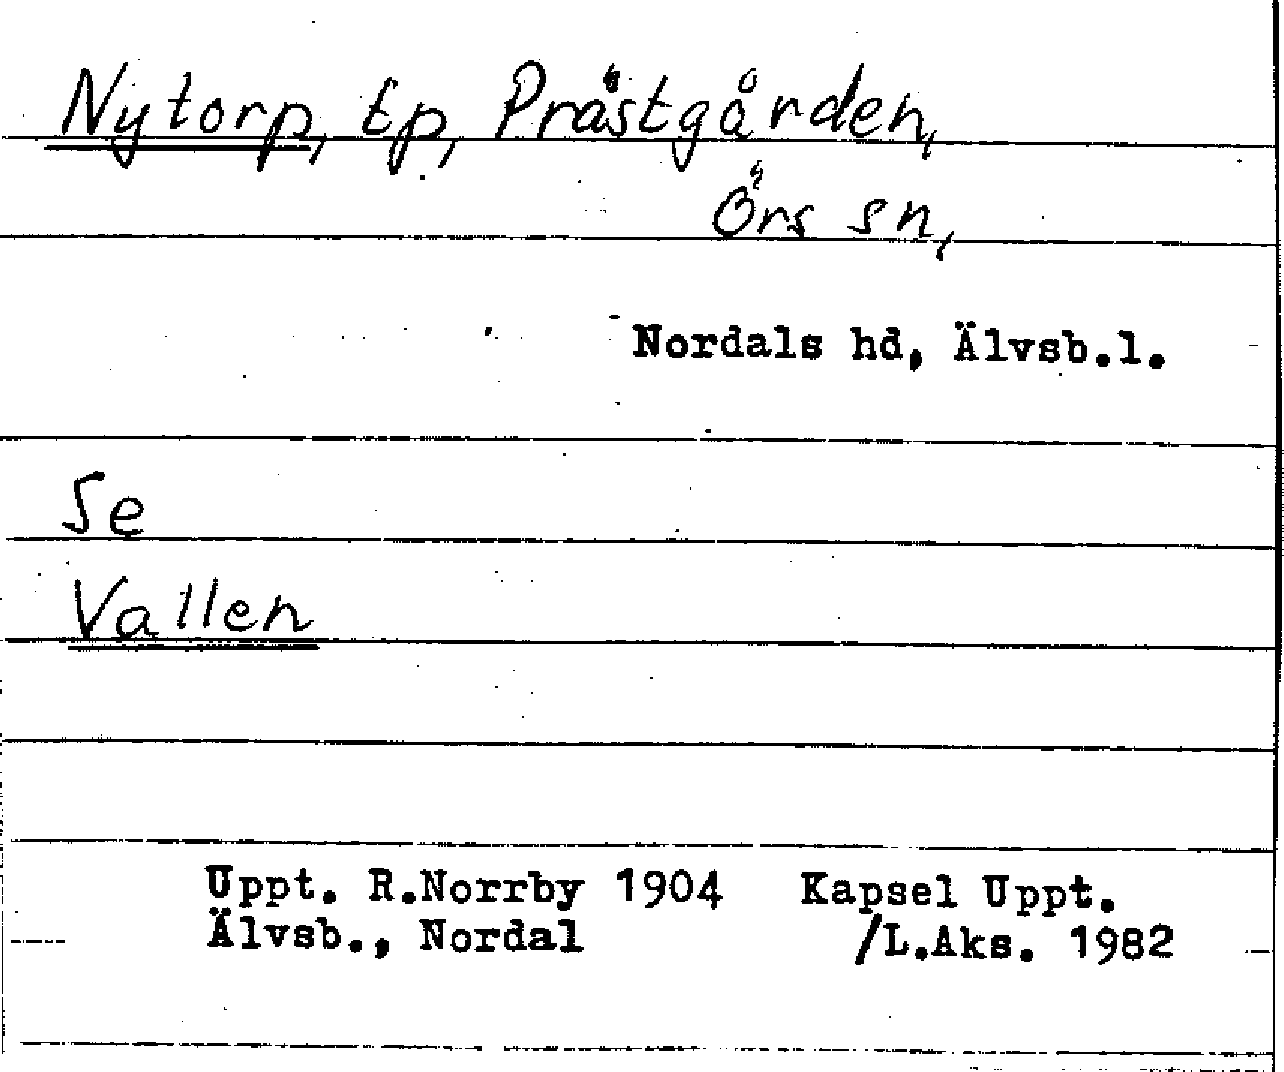 Nytorp, tp, Prästgården,
Örs sn,
Nordals hd, Älvsb.l.
Se
Vallen
Uppt. R.Norrby 1904 Kapsel Uppt.
Älvsb., Nordal /L.Aks. 1982